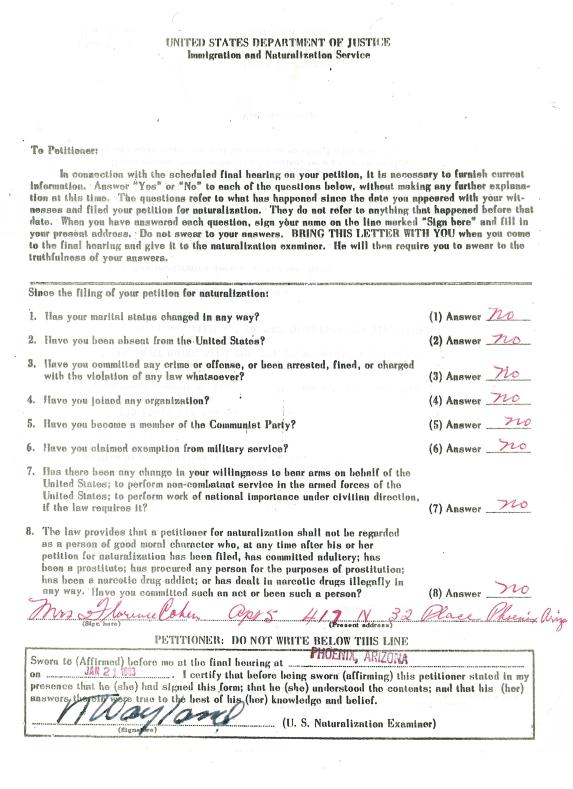 UNITED STATES DEPARTMENT OF JUSTICE
Immigration and Naturalization Service
To Petitioner:
In connection with the scheduled final hearing on your petition, it is necessary to furnish current
information. Answer "Yes" or "No" to each of the questions below, without making any further explana-
tion at this time. The questions refer to what has happened since the date you appeared with your wit-
nesses and filed your petition for naturalization. They do not refer to anything that happened before that
date. When you have answered each question, sign your name on the line marked "Sign here" and fill in
your present address. Do not swear to your answers. BRING THIS LETTER WITH YOU when you come
to the final hearing and give it to the naturalization examiner. He will then require you to swear to the
truthfulness of your answers.
Since the filing of your petition for naturalization:
1. Has your marital status changed in any way? (1) Answer no
2. Have you been absent from the United States? (2) Answer no
3. Have you committed any crime or offense, or been arrested, fined, or charged
with the violation of any law whatsoever? (3) Answer no
4. Have you joined any organization? (4) Answer no
5. Have you become a member of the Communist Party? (5) Answer no
6. Have you claimed exemption from military service? (6) Answer no
7. Has there been any change in your willingness to bear arms on behalf of the
United States; to perform non-combatant service in the armed forces of the
United States; to perform work of national importance under civilian direction,
if the law requires it? (7) Answer no
8. The law provides that a petitioner for naturalization shall not be regarded
as a person of good moral character who, at any time after his or her
petition for naturalization has been filed, has committed adultery; has
been a prostitute; has procured any person for the purposes of prostitution;
has been a narcotic drug addict; or has dealt in narcotic drugs illegally in
any way. Have you committed such an act or been such a person? (8) Answer no
Mrs Florence Cohen Apt 5 417 N 32 Place Phoenix Ariz
(Sign here) (Present address)
PETITIONER: DO NOT WRITE BELOW THIS LINE
Sworn to (Affirmed) before me at the final hearing at PHOENIX, ARIZONA
on JAN 21 1963 . I certify that before being sworn (affirming) this petitioner stated in my
presence that he (she) had signed this form; that he (she) understood the contents; and that his (her)
answers thereto were true to the best of his (her) knowledge and belief.
(U. S. Naturalization Examiner)
(Signature)